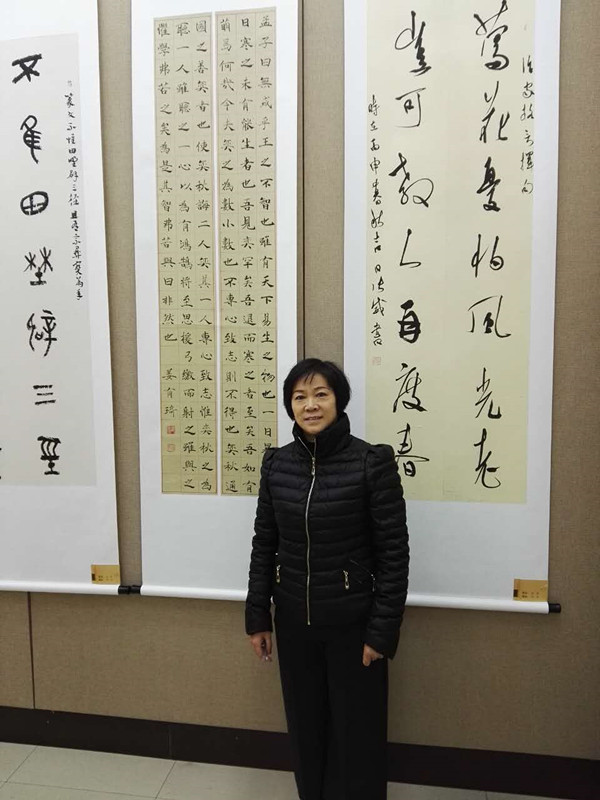 鶯花怕風光老
豈可教人度春
時在丙申春
孟子曰無或乎王之不智也雖有天下易生之物也一日暴
日寒之未有能生者也吾見亦罕矣吾退而寒之者至矣吾如有
萌焉何哉今夫奕之為數小數也不專心致志則不得也奕秋通
國之善奕者也使奕秋誨二人奕其一人專心致志惟奕秋之為
聽一人雖聽之一心以為有鴻鵠將至思援弓繳而射之雖與之
俱學弗若之矣為是其智弗若與曰非然也 姜有琦
不隹田野三